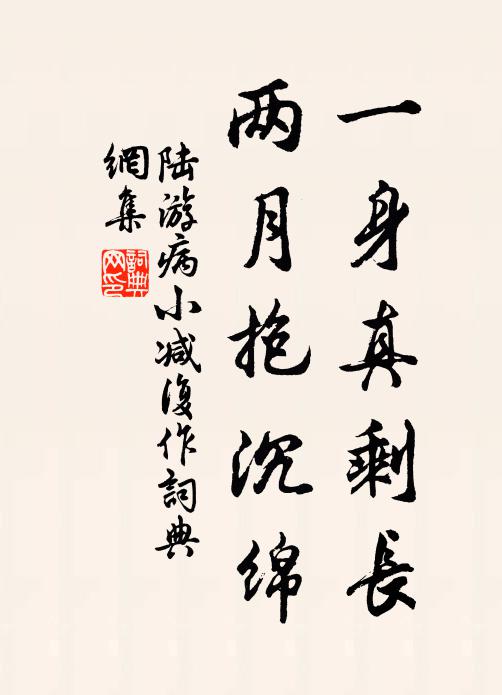 一身真剩長
两月抱沉绵
陆游病小减復作詞典
網集
詞典
网印